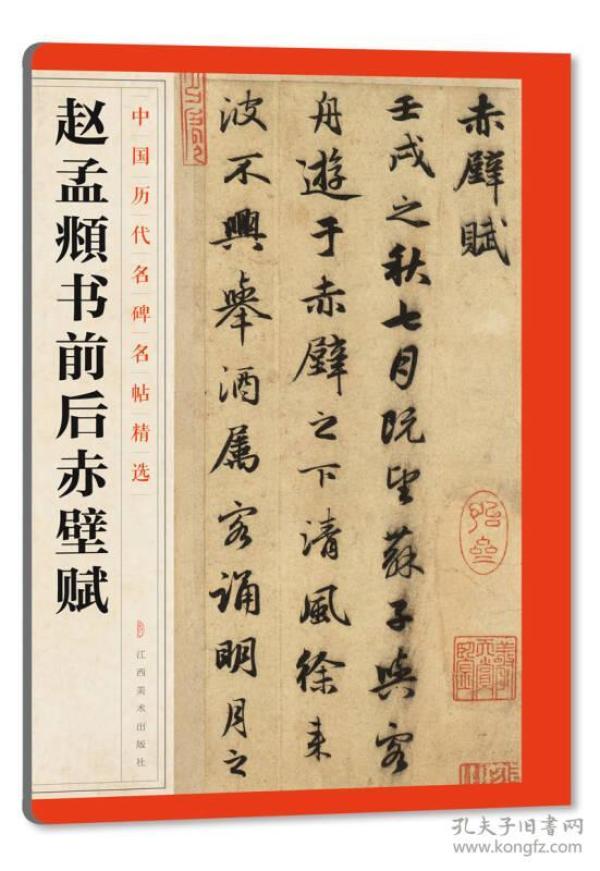 赵孟頫书前后赤壁赋
中国历代名碑名帖精选
江西美术出版社
赤壁賦
壬戌之秋七月既望蘇子與客
舟遊于赤壁之下清風徐来
波不興舉酒属客誦明月之
孔夫子旧書网
www.kongfz.com